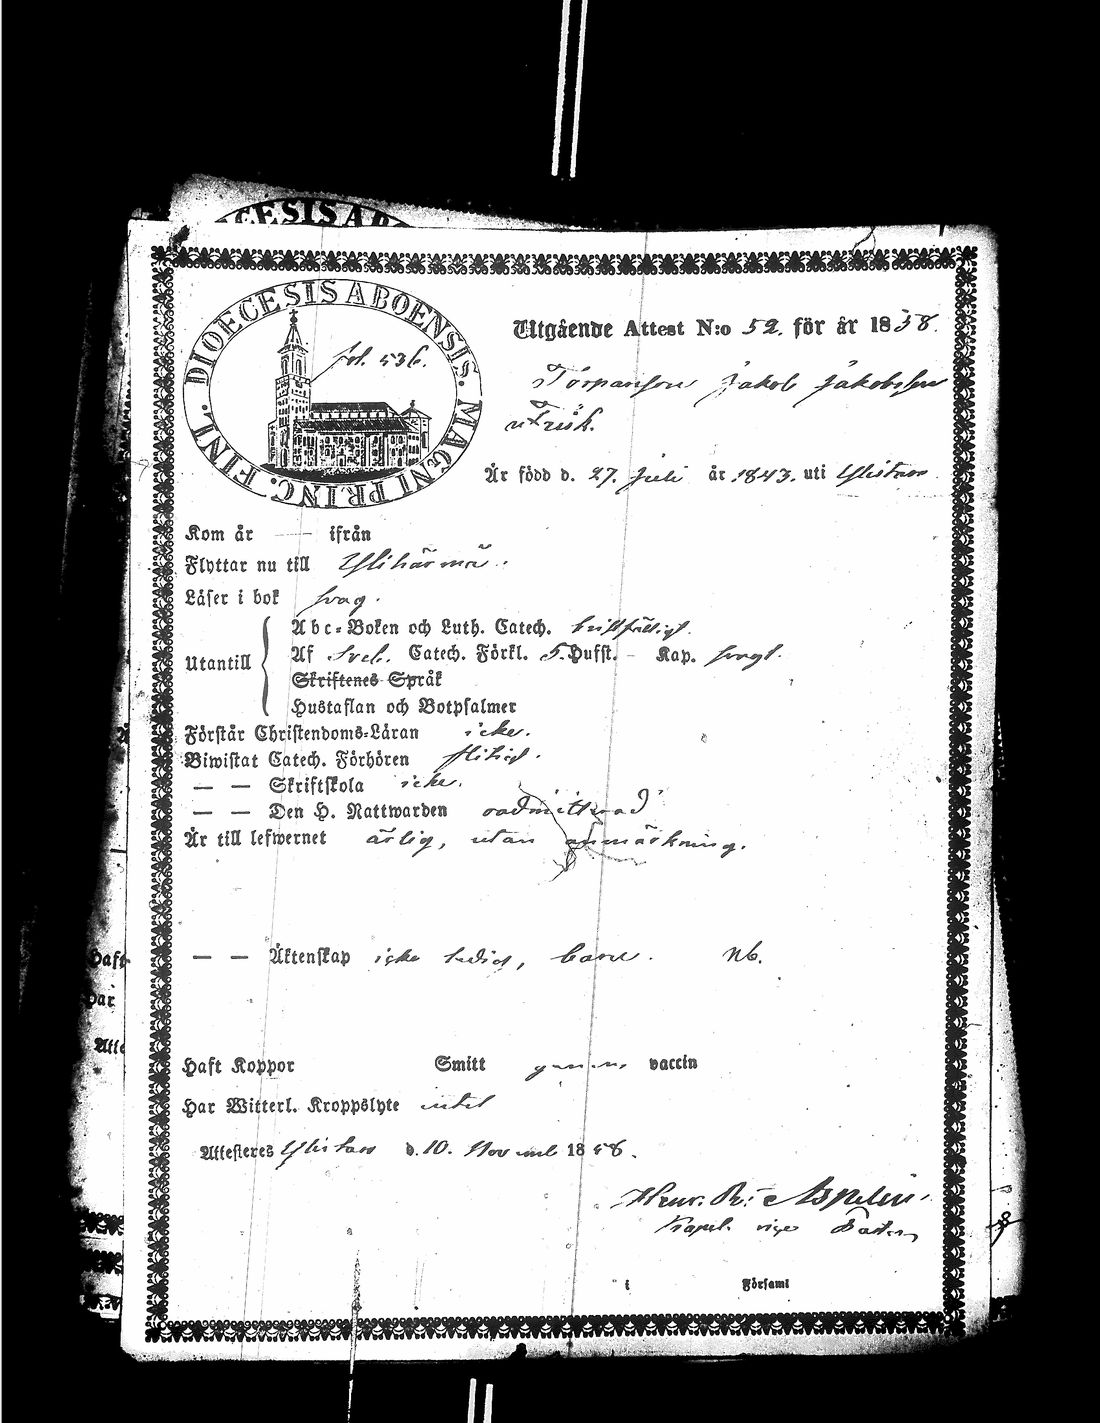 CESIS ABO
DIOECESIS ABOENSIS. MAG. NI PRINC. FINL.
fol. 536.
Utgående Attest N:o 52. för år 1858.
Torparsson Jakob Jakobsson
Är född d. 27. Juli år 1843. uti Ylistaro
Kom år — ifrån
Flyttar nu till Ylihärmä.
Läser i bok svag.
Utantill
Abc-Boken och Luth. Catech. bristfälligt.
Af Sveb. Catech. Förkl. 5. Hufst. - Kap. svagt.
Skriftenes Språk
Hustaflan och Botpsalmer
Förstår Christendoms-Läran icke.
Biwistat Catech. Förhören flitigt.
— — Skriftskola icke.
— — Den H. Nattwarden oadmitterad
Är till lefwernet ärlig, utan anmärkning.
— — Äktenskap icke ledig, barn. Nb.
Haft Koppor Smitt genom vaccin
Har Witterl. Kroppslyte intet
Attesteres Ylistaro d. 10. November 1858.
Henr. Aspelin
Kapel. vice Pastor
i Församl
Haft
Har
Atte